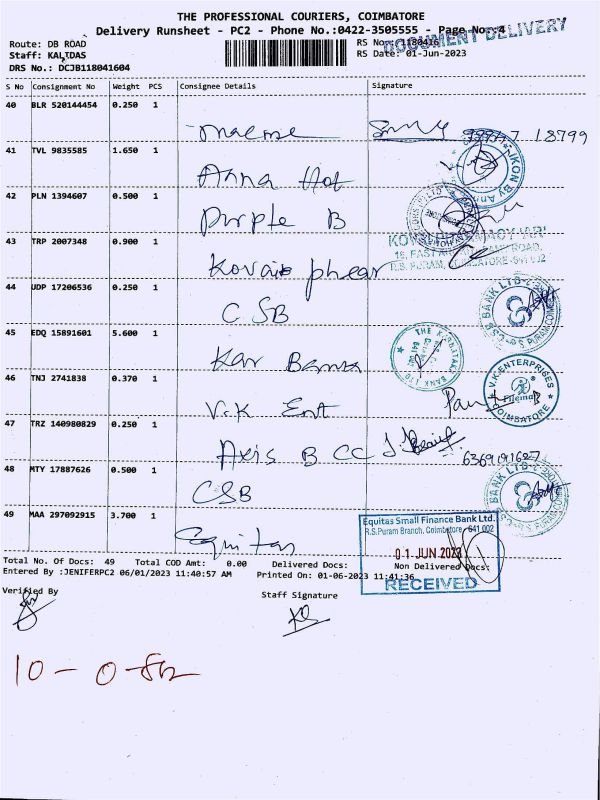 THE PROFESSIONAL COURIERS, COIMBATORE
Delivery Runsheet - PC2 - Phone No.:0422-3505555 - Page No.:4
DOCUMENT DELIVERY
Route: DB ROAD
RS No.: 1180416
Staff: KALIDAS
RS Date: 01-Jun-2023
DRS No.: DCJB118041604
S No Consignment No Weight PCS Consignee Details Signature
40 BLR 520144454 0.250 1
18799
41 TVL 9835585 1.650 1
Anna Hot
IKON By Ann
42 PLN 1394607 0.500 1
Purple B
43 TRP 2007348 0.900 1
Kovai phear
R.S. PURAM, COIMBATORE-641 002
44 UDP 17206536 0.250 1
CSB
CSB BANK LTD R.S. PURAM, COIMBATORE
45 EDQ 15891601 5.600 1
Kar Bama
THE KARNATAKA BANK LTD
46 TNJ 2741838 0.370 1
V.K Ent
V.K. ENTERPRISES COIMBATORE
47 TRZ 140980829 0.250 1
Axis B CC
6369191627
48 MTY 17887626 0.500 1
CSB
49 MAA 297092915 3.700 1
Equitas
Equitas Small Finance Bank Ltd.
R.S.Puram Branch, Coimbatore - 641 002
01 JUN 2023
RECEIVED
Total No. Of Docs: 49 Total COD Amt: 0.00 Delivered Docs: Non Delivered Docs:
Entered By :JENIFERPC2 06/01/2023 11:40:57 AM Printed On: 01-06-2023 11:41:36
Verified By
Staff Signature
10 - 0 -